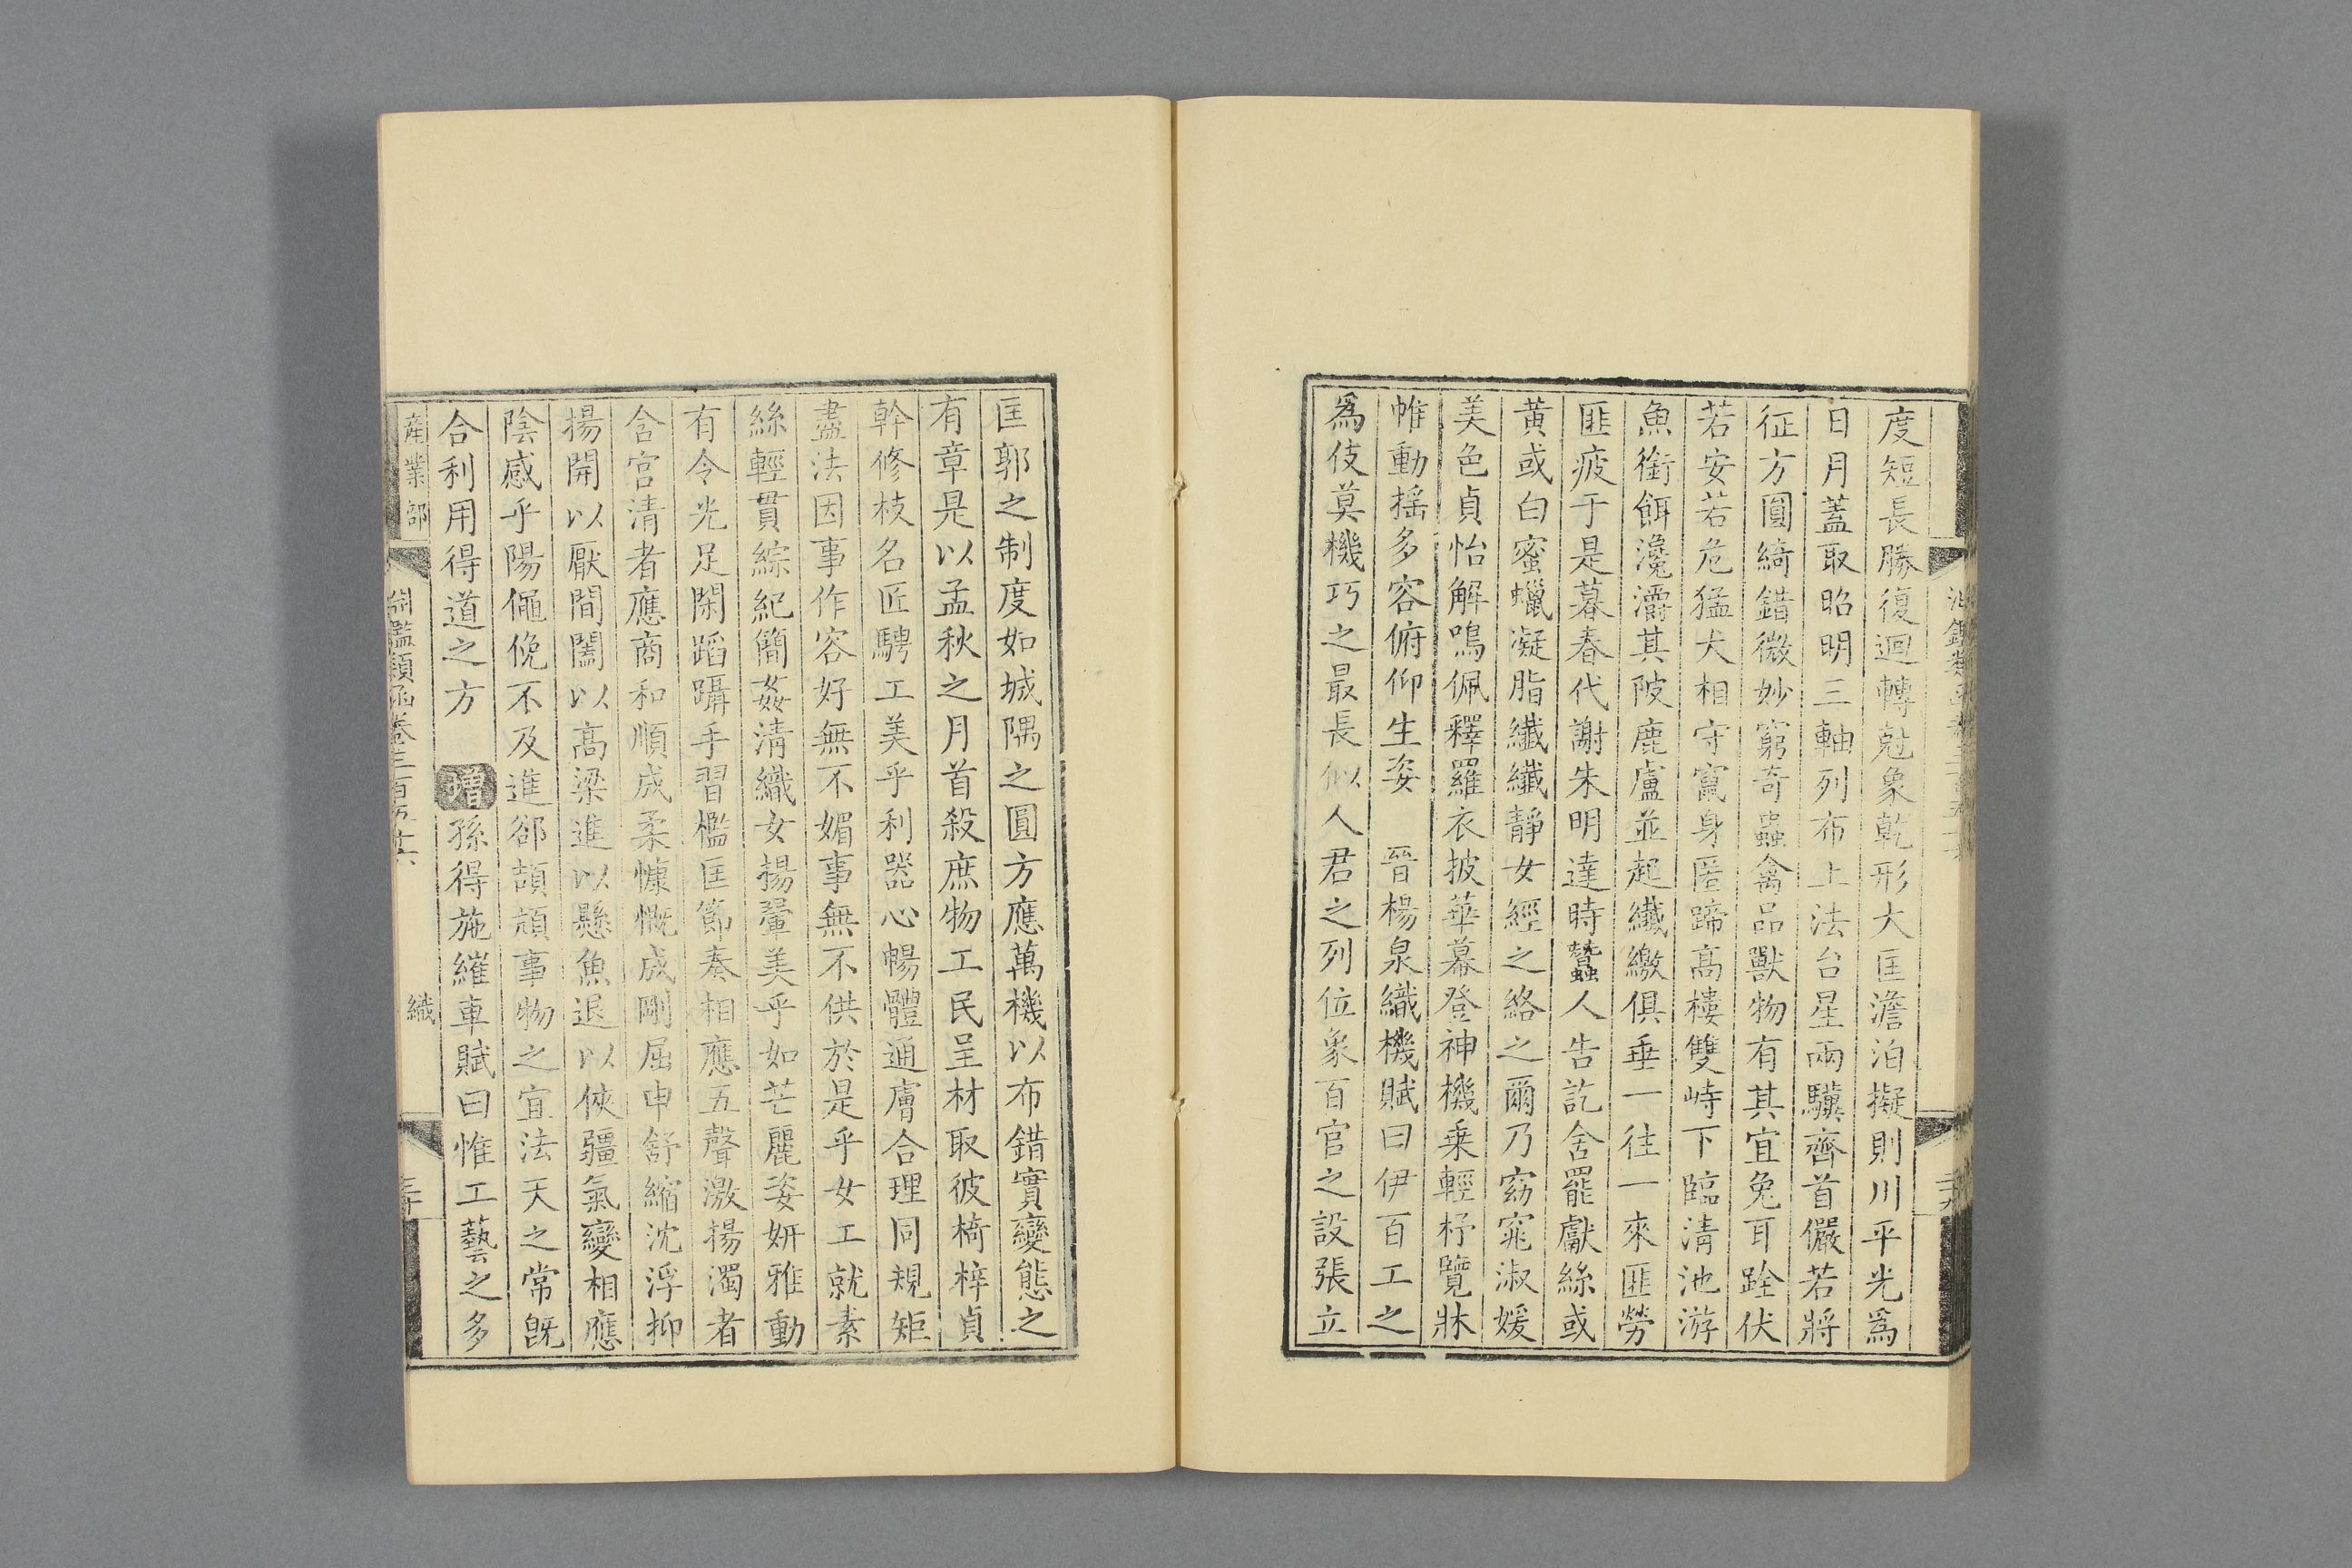 度短長勝復迴轉尅象乾形大匡澹泊擬則川平光爲
日月蓋取昭明三軸列布上法台星兩驥齊首儼若將
征方圓綺錯微妙窮奇蟲禽品獸物有其宜兔耳跧伏
若安若危猛犬相守竄身匿蹄高樓雙峙下臨清池游
魚銜餌瀺灂其陂鹿盧並起纖繳俱垂一往一來匪勞
匪疲于是暮春代謝朱明達時蠶人告訖舍罷獻絲或
黃或白蜜蠟凝脂纖纖靜女經之絡之爾乃窈窕淑媛
美色貞怡解鳴佩釋羅衣披華幕登神機乗輕杼覽牀
帷動摇多容俯仰生姿 晉楊泉織機賦曰伊百工之
爲伎莫機巧之最長似人君之列位象百官之設張立
匡郭之制度如城隅之圓方應萬機以布錯實變態之
有章是以孟秋之月首殺庶物工民呈材取彼椅梓貞
幹修枝名匠騁工美乎利器心暢體通膚合理同規矩
盡法因事作容好無不媚事無不供於是乎女工就素
絲輕貫綜紀簡姦清織女揚翬美乎如芒麗姿妍雅動
有令光足閑蹈躡手習檻匡節奏相應五聲激揚濁者
含宮清者應商和順成柔慷慨成剛屈申舒縮沈浮抑
揚開以厭間闔以高梁進以懸魚退以俠疆氣變相應
陰感乎陽僶俛不及進郤頡頏事物之宜法天之常旣
合利用得道之方 增孫得施繀車賦曰惟工藝之多
產業部 淵鑑類函卷三百五十六 織 三十